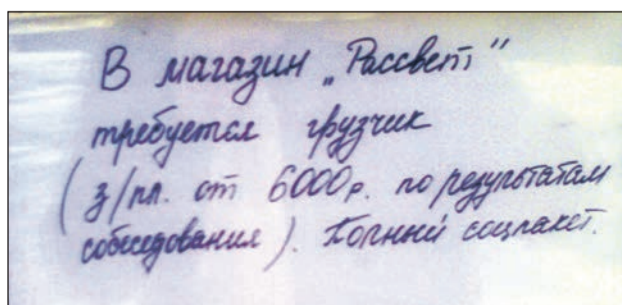 В магазин „Рассвет"
требуется грузчик
(з/пл. от 6000р. по результатам
собеседования). Полный соцпакет.